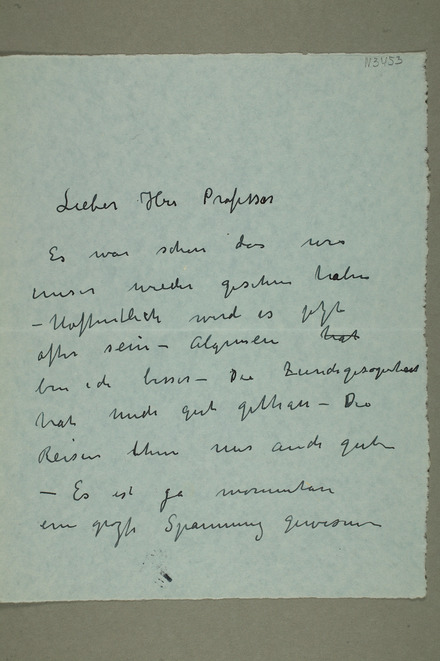 N3453
Lieber Herr Professor
Es war schön das uns
wieder gesehen haben
– Hoffentlich wird es jetzt
öfter sein –
bin ich besser – Die
hat mich gut gethan – Die
Reisen thun uns auch gut
– Es ist ja momentan
eine große Spannung gewesen